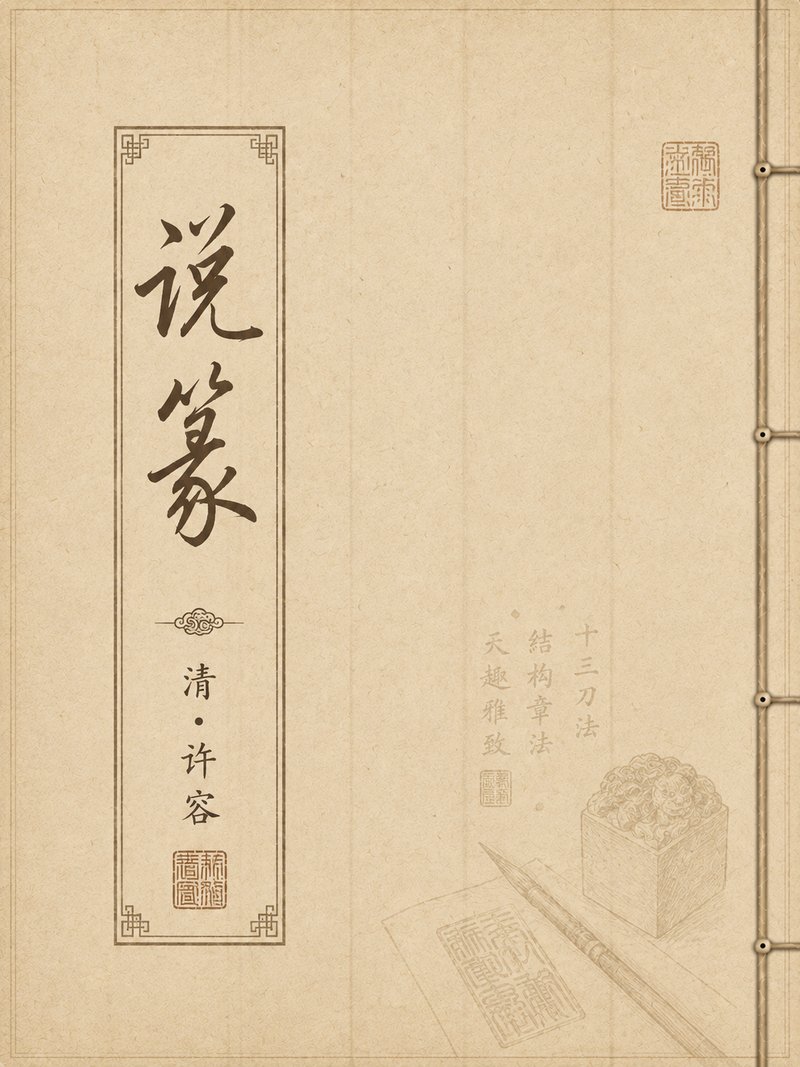 说篆
清·许容
十三刀法
結构章法
天趣雅致